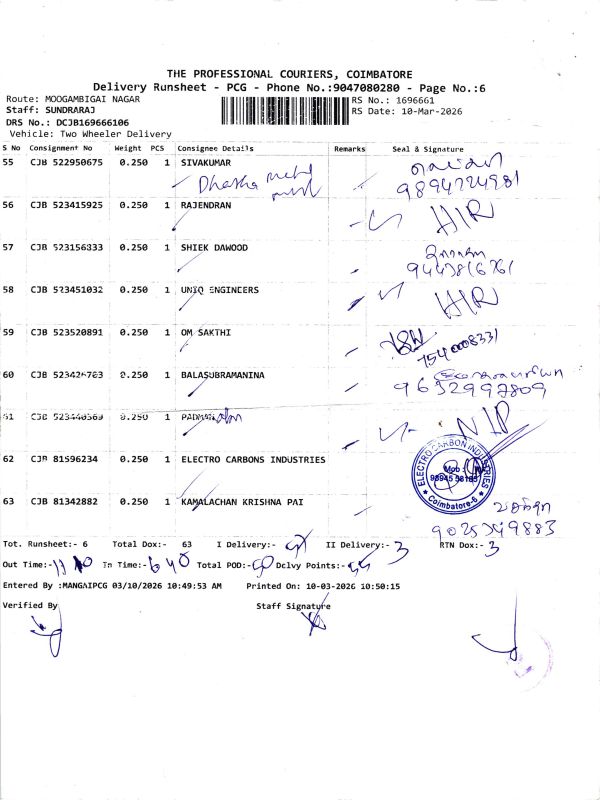 THE PROFESSIONAL COURIERS, COIMBATORE
Delivery Runsheet - PCG - Phone No.:9047080280 - Page No.:6
Route: MOOGAMBIGAI NAGAR
Staff: SUNDRARAJ
DRS No.: DCJB169666106
Vehicle: Two Wheeler Delivery
RS No.: 1696661
RS Date: 10-Mar-2026
S No Consignment No Weight PCS Consignee Details Remarks Seal & Signature
55 CJB 522950675 0.250 1 SIVAKUMAR
9894224981
56 CJB 523415925 0.250 1 RAJENDRAN
57 CJB 523156333 0.250 1 SHIEK DAWOOD
9443816761
58 CJB 523451032 0.250 1 UNIQ ENGINEERS
59 CJB 523520891 0.250 1 OM SAKTHI
7540008331
60 CJB 0.250 1 BALASUBRAMANINA
9632997809
61 CJB 0.250 1
62 CJB 81596234 0.250 1 ELECTRO CARBONS INDUSTRIES
ELECTRO CARBON INDUSTRIES
Coimbatore-6
63 CJB 81342882 0.250 1 KAMALACHAN KRISHNA PAI
Tot. Runsheet:- 6 Total Dox:- 63 I Delivery:- II Delivery:- 3 RTN Dox:- 3
Out Time:- In Time:- 6 40 Total POD:- Dclvy Points:-
Entered By :MANGAIPCG 03/10/2026 10:49:53 AM Printed On: 10-03-2026 10:50:15
Verified By Staff Signature